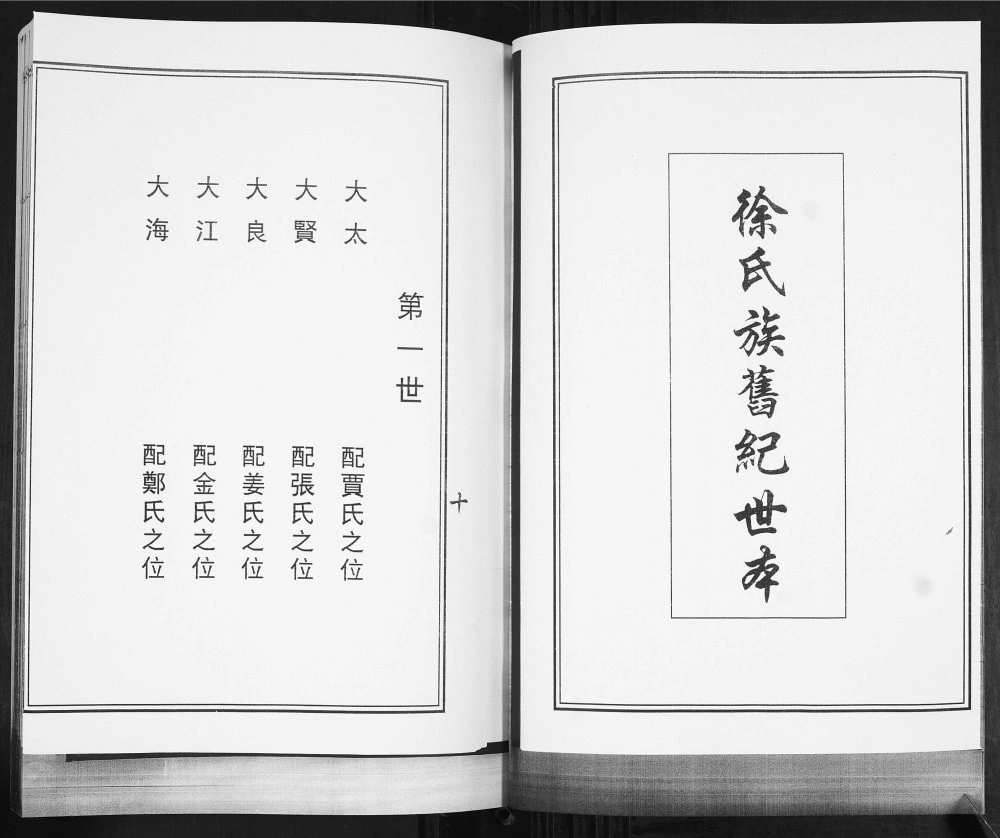 徐氏族舊紀世本
十
第一世
大太 配賈氏之位
大賢 配張氏之位
大良 配姜氏之位
大江 配金氏之位
大海 配鄭氏之位